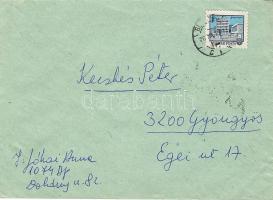 Kecskés Péter
3200 Gyöngyös
Egei út 17
J. Jókai Anna
1074 Bp
Dohány u. 82.